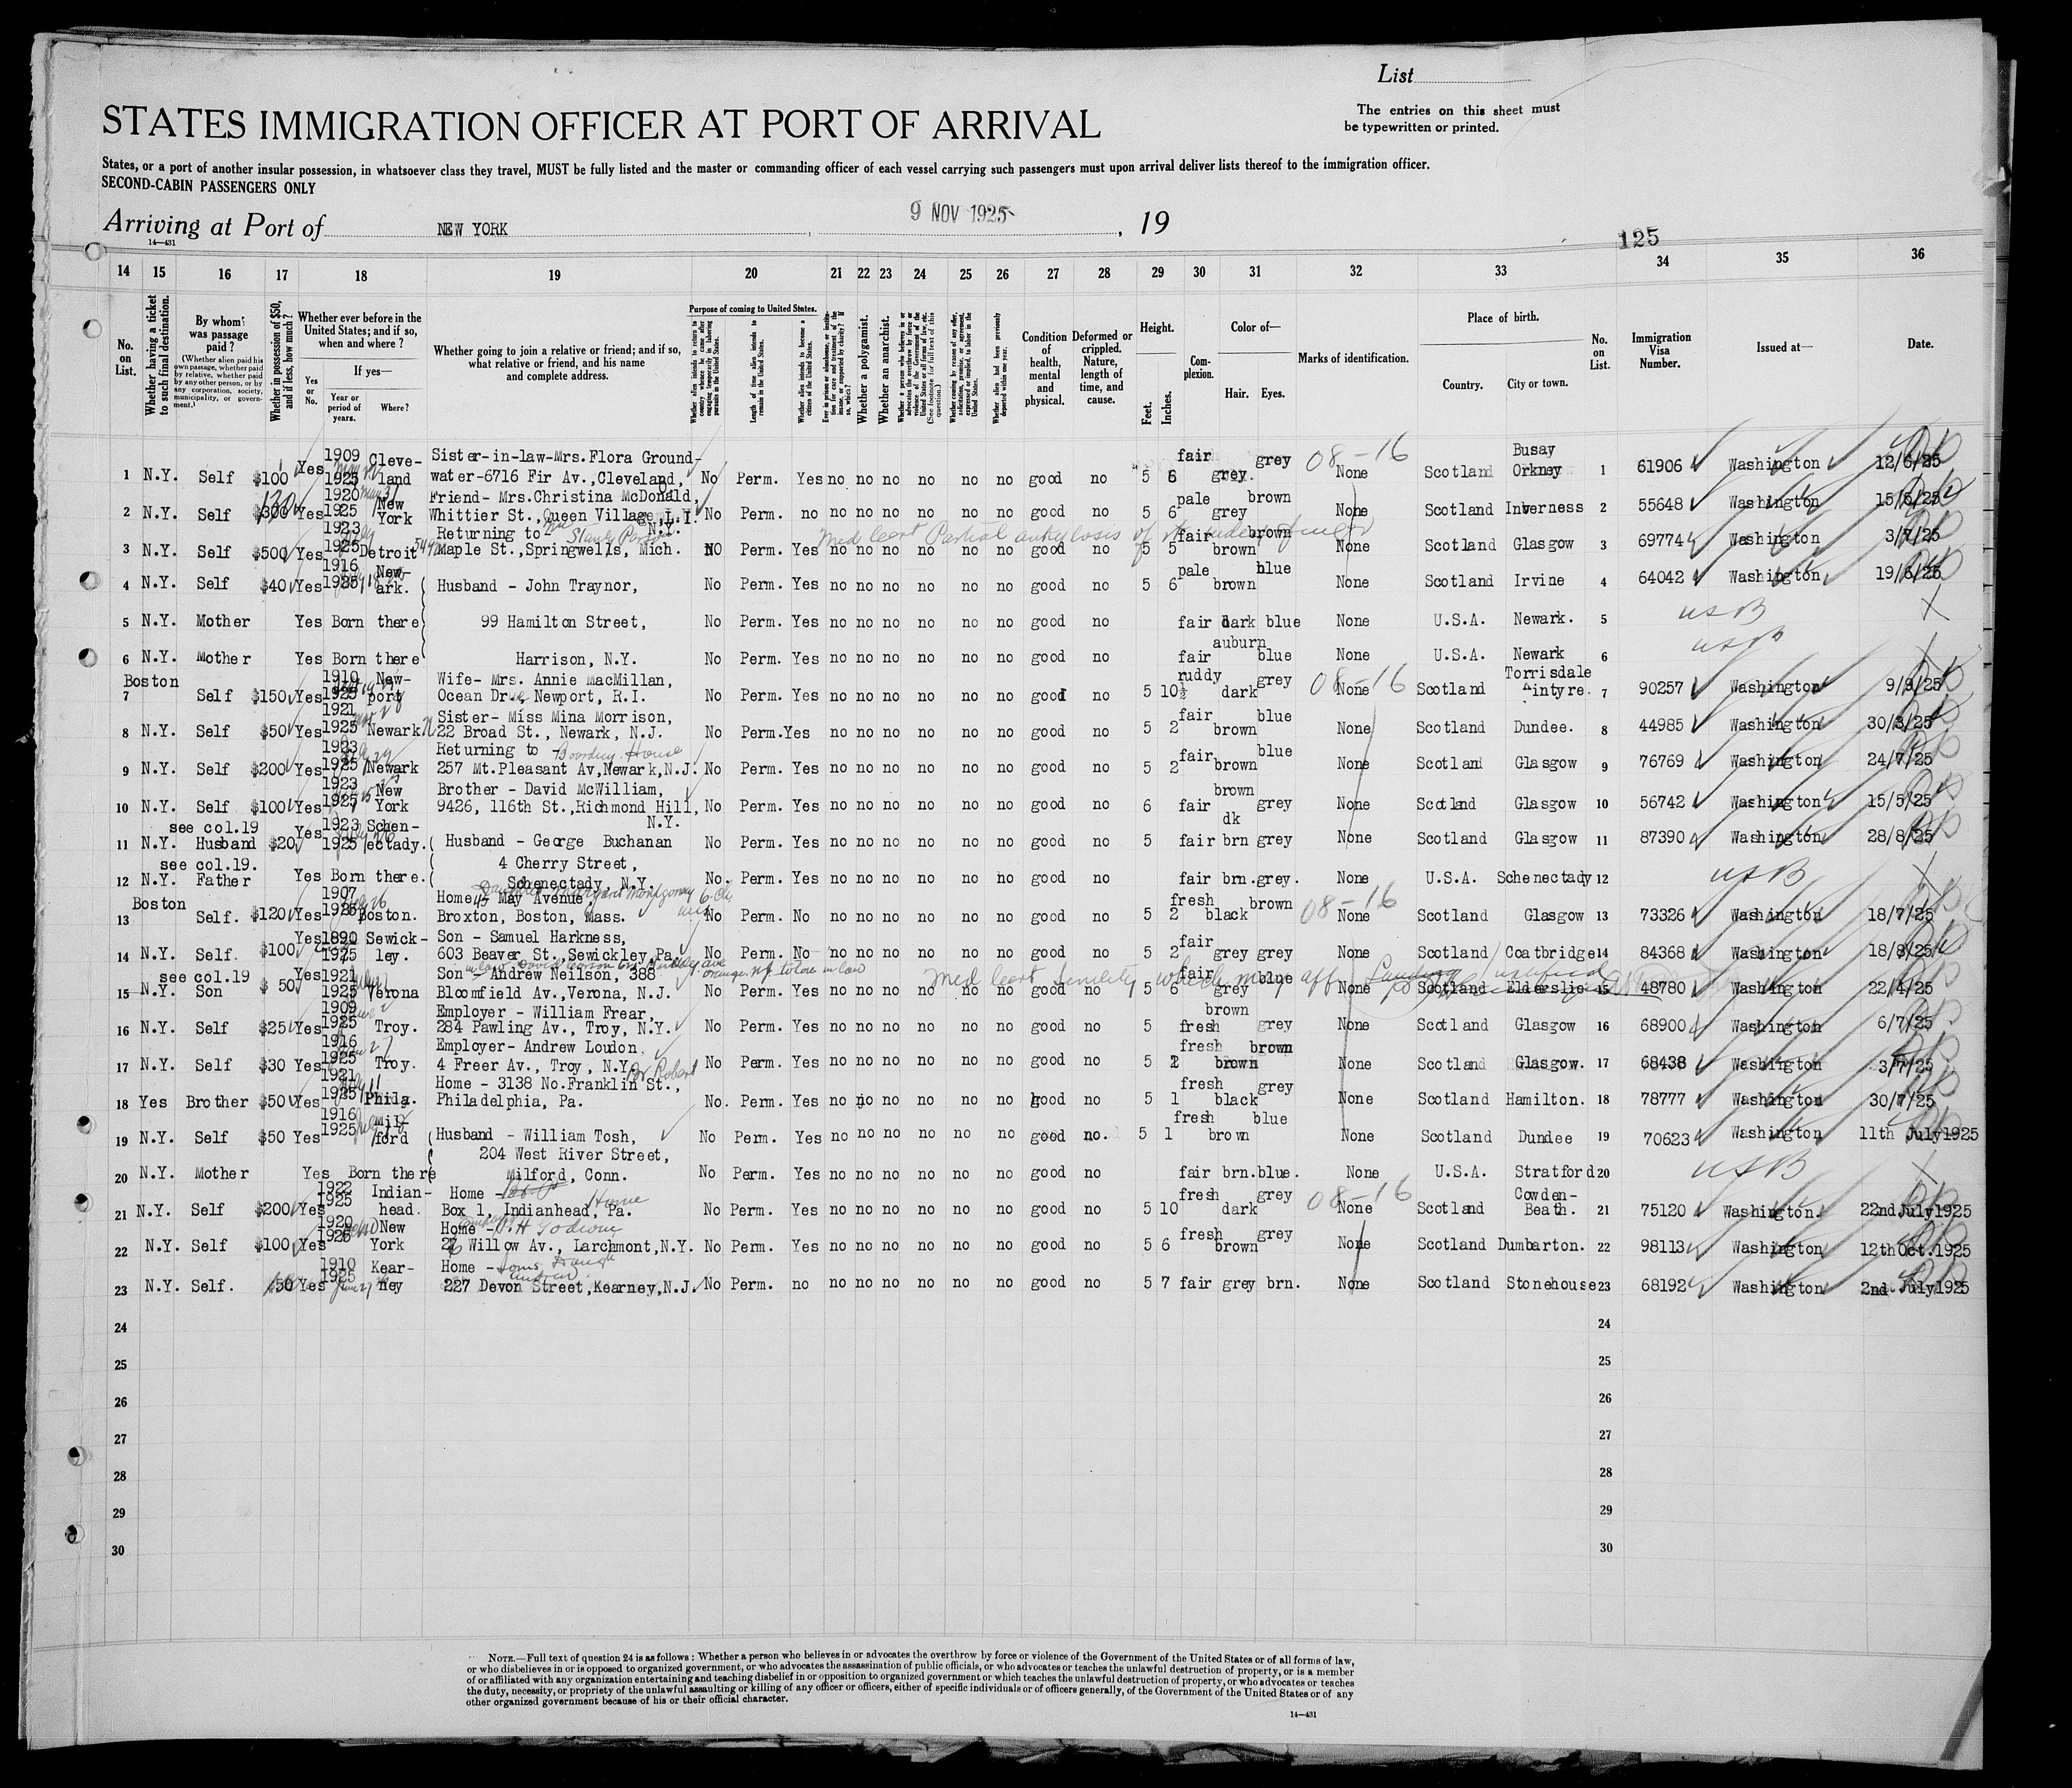 List
The entries on this sheet must
be typewritten or printed.
STATES IMMIGRATION OFFICER AT PORT OF ARRIVAL
States, or a port of another insular possession, in whatsoever class they travel, MUST be fully listed and the master or commanding officer of each vessel carrying such passengers must upon arrival deliver lists thereof to the immigration officer.
SECOND-CABIN PASSENGERS ONLY
Arriving at Port of NEW YORK, 9 NOV 1925, 19
14—431
125
14 15 16 17 18 19 20 21 22 23 24 25 26 27 28 29 30 31 32 33 34 35 36
No. on List.
Whether having a ticket to such final destination.
By whom was passage paid?
(Whether alien paid his own passage, whether paid by relative, whether paid by any other person, or by any corporation, society, municipality, or government.)
Whether in possession of $50, and if less, how much?
Whether ever before in the United States; and if so, when and where?
If yes—
Yes or No.
Year or period of years.
Where?
Whether going to join a relative or friend; and if so, what relative or friend, and his name and complete address.
Purpose of coming to United States.
Whether alien intends to return to country whence he came after engaging temporarily in laboring pursuits in the United States.
Length of time alien intends to remain in the United States.
Whether alien intends to become a citizen of the United States.
Ever in prison or almshouse, or institution for care and treatment of the insane, or supported by charity? If so, which?
Whether a polygamist.
Whether an anarchist.
Whether a person who believes in or advocates the overthrow by force or violence of the Government of the United States or all forms of law, etc. (See footnote for full text of this question.)
Whether coming by reason of any offer, solicitation, promise, or agreement, expressed or implied, to labor in the United States.
Whether alien had been previously deported within one year.
Condition of health, mental and physical.
Deformed or crippled. Nature, length of time, and cause.
Height.
Feet. Inches.
Complexion.
Color of—
Hair. Eyes.
Marks of identification.
Place of birth.
Country. City or town.
No. on List.
Immigration Visa Number.
Issued at—
Date.
1 N.Y. Self $100 Yes 1909 1925 Cleveland Sister-in-law-Mrs.Flora Groundwater-6716 Fir Av.,Cleveland, O. No Perm. Yes no no no no no no good no 5 6 fair grey. grey 08-16 None Scotland Busay Orkney 1 61906 Washington 12/6/25
2 N.Y. Self $300 130 Yes 1920 1925 May 31 New York Friend- Mrs.Christina McDonald, Whittier St.,Queen Village,L.I. N.Y. No Perm. no no no no no no no good no 5 6 pale grey brown None Scotland Inverness 2 55648 Washington 15/5/25
3 N.Y. Self $500 Yes 1923 1925 Detroit Returning to Maple St.,Springwells, Mich. NO Perm. Yes no no no no no no good no 5 5 fair brown brown None Scotland Glasgow 3 69774 Washington 3/7/25
Med cert Partial ankylosis of rt index finger
4 N.Y. Self $40 Yes 1916 1925 Newark. Husband - John Traynor, No Perm. Yes no no no no no no good no 5 6 pale brown blue None Scotland Irvine 4 64042 Washington 19/6/25
5 N.Y. Mother Yes Born there 99 Hamilton Street, No Perm. Yes no no no no no no good no fair dark blue None U.S.A. Newark. 5 USB X
6 N.Y. Mother Yes Born there Harrison, N.Y. No Perm. Yes no no no no no no good no fair auburn blue None U.S.A. Newark 6 USB
7 Boston Self $150 Yes 1910 1925 Newport Wife- Mrs. Annie MacMillan, Ocean Drive, Newport, R.I. No Perm. Yes no no no no no no good no 5 10½ ruddy dark grey 08-16 None Scotland Torrisdale intyre. 7 90257 Washington 9/9/25
8 N.Y. Self $50 Yes 1921 1925 Newark Sister- Miss Mina Morrison, 22 Broad St., Newark, N.J. No Perm. Yes no no no no no no good no 5 2 fair brown blue None Scotland Dundee. 8 44985 Washington 30/3/25
9 N.Y. Self $200 Yes 1923 1925 Newark Returning to Boarding House 257 Mt.Pleasant Av,Newark,N.J. No Perm. Yes no no no no no no good no 5 2 fair brown blue None Scotland Glasgow 9 76769 Washington 24/7/25
10 N.Y. Self $100 Yes 1923 1925 New York Brother - David McWilliam, 9426, 116th St.,Richmond Hill, N.Y. No Perm. Yes no no no no no no good no 6 fair brown grey None Scotlnd Glasgow 10 56742 Washington 15/5/25
11 see col.19 N.Y. Husband $20 Yes 1923 1925 Schenectady. Husband - George Buchanan No Perm. Yes no no no no no no good no 5 fair dk brn grey None Scotland Glasgow 11 87390 Washington 28/8/25
4 Cherry Street,
12 see col.19. N.Y. Father Yes Born there. Schenectady, N.Y. No. Perm. Yes no no no no no no good no fair brn. grey. None U.S.A. Schenectady 12 USB X
13 Boston Self. $120 Yes 1907 1925 Boston. Home- 45 May Avenue, Broxton, Boston, Mass. Daughter Margaret Montgomery No Perm. No no no no no no no good no 5 2 fresh black brown 08-16 None Scotland Glasgow 13 73326 Washington 18/7/25
14 N.Y. Self. $100 Yes 1890 1925 Sewickley. Son - Samuel Harkness, 603 Beaver St.,Sewickley,Pa. No Perm. No no no no no no no good no 5 2 fair grey grey None Scotland Coatbridge 14 84368 Washington 18/8/25
15 see col.19 N.Y. Son $50 Yes 1921 1925 Verona Son - Andrew Neilson, 388 Bloomfield Av.,Verona, N.J. No Perm. Yes no no no no no no good no 5 6 fair grey blue None Scotland Elderslie 15 48780 Washington 22/4/25
Med cert Senility which may aff
16 N.Y. Self $25 Yes 1909 1925 Troy. Employer - William Frear, 284 Pawling Av., Troy, N.Y. No Perm. Yes no no no no no no good no 5 fresh brown grey None Scotland Glasgow 16 68900 Washington 6/7/25
17 N.Y. Self $30 Yes 1916 1925 Troy. Employer- Andrew Loudon, 4 Freer Av., Troy, N.Y. No Perm. Yes no no no no no no good no 5 2 fresh brown brown None Scotland Glasgow. 17 68438 Washington 3/7/25
18 Yes Brother $50 Yes 1921 1925 Phila. Home - 3138 No.Franklin St., Philadelphia, Pa. Br Robert No. Perm. Yes no no no no no no good no 5 1 fresh black grey None Scotland Hamilton. 18 78777 Washington 30/7/25
19 N.Y. Self $50 Yes 1916 1925 Milford Husband - William Tosh, No Perm. Yes no no no no no no good no. 5 1 fresh brown blue None Scotland Dundee 19 70623 Washington 11th July1925
204 West River Street,
20 N.Y. Mother Yes Born there Milford, Conn. No Perm. Yes no no no no no no good no fair brn. blue. None U.S.A. Stratford 20 USB X
21 N.Y. Self $200 Yes 1922 1925 Indianhead. Home - Home Box 1, Indianhead, Pa. No Perm. Yes no no no no no no good no 5 10 fresh dark grey 08-16 None Scotland Cowden-Beath. 21 75120 Washington. 22nd July1925
22 N.Y. Self $100 Yes 1920 1925 New York Home - 22 Willow Av., Larchmont,N.Y. No Perm. Yes no no no no no no good no 5 6 fresh brown grey None Scotland Dumbarton. 22 98113 Washington 12thOct.1925
23 N.Y. Self. $50 Yes 1910 1925 Kearney Home - 227 Devon Street,Kearney,N.J. No Perm. no no no no no no no good no 5 7 fair grey brn. None Scotland Stonehouse 23 68192 Washington 2nd July1925
24 24
25 25
26 26
27 27
28 28
29 29
30 30
NOTE.—Full text of question 24 is as follows: Whether a person who believes in or advocates the overthrow by force or violence of the Government of the United States or of all forms of law,
or who disbelieves in or is opposed to organized government, or who advocates the assassination of public officials, or who advocates or teaches the unlawful destruction of property, or is a member
of or affiliated with any organization entertaining and teaching disbelief in or opposition to organized government or which teaches the unlawful destruction of property, or who advocates or teaches
the duty, necessity, or propriety of the unlawful assaulting or killing of any officer or officers, either of specific individuals or of officers generally, of the Government of the United States or of any
other organized government because of his or their official character.
14—431